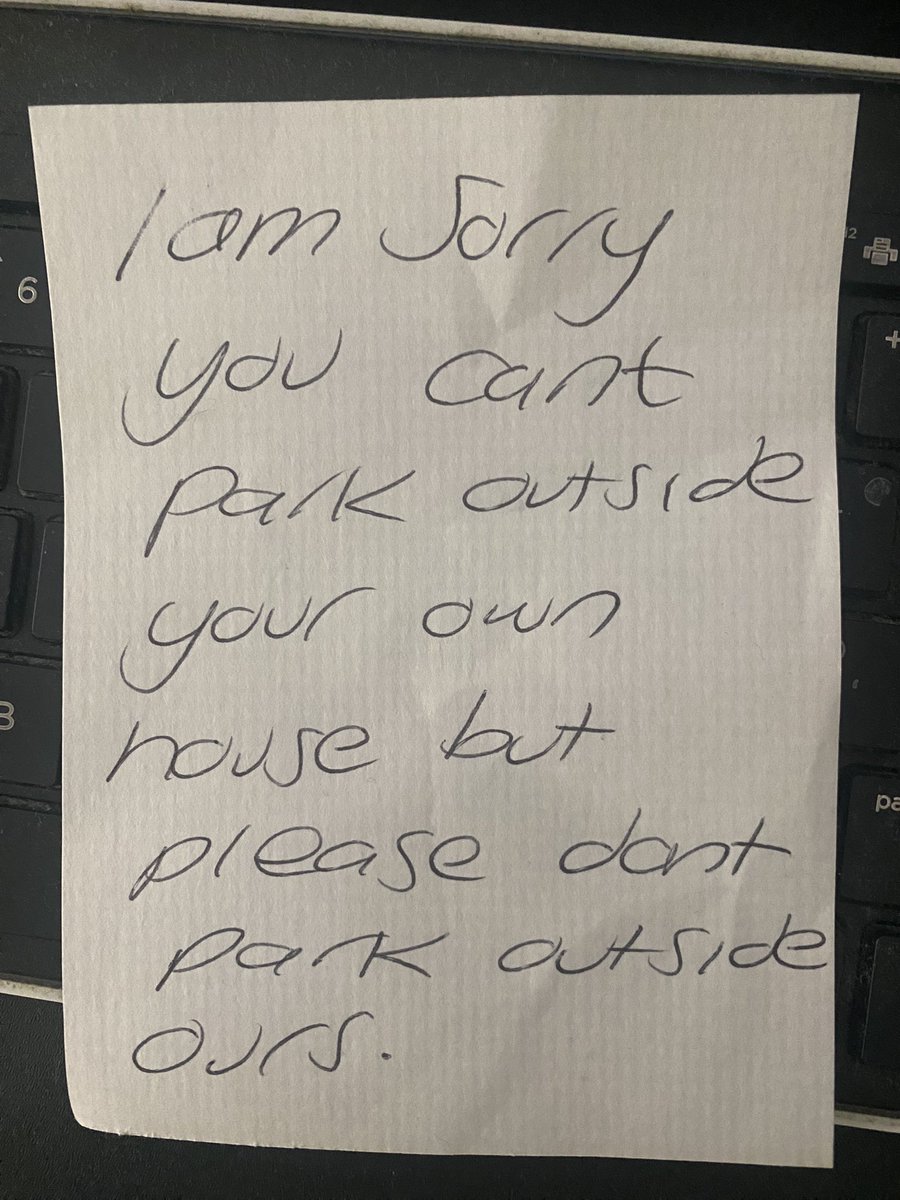 I am Sorry
you cant
park outside
your own
house but
please dont
park outside
ours.
6
3
+
pa